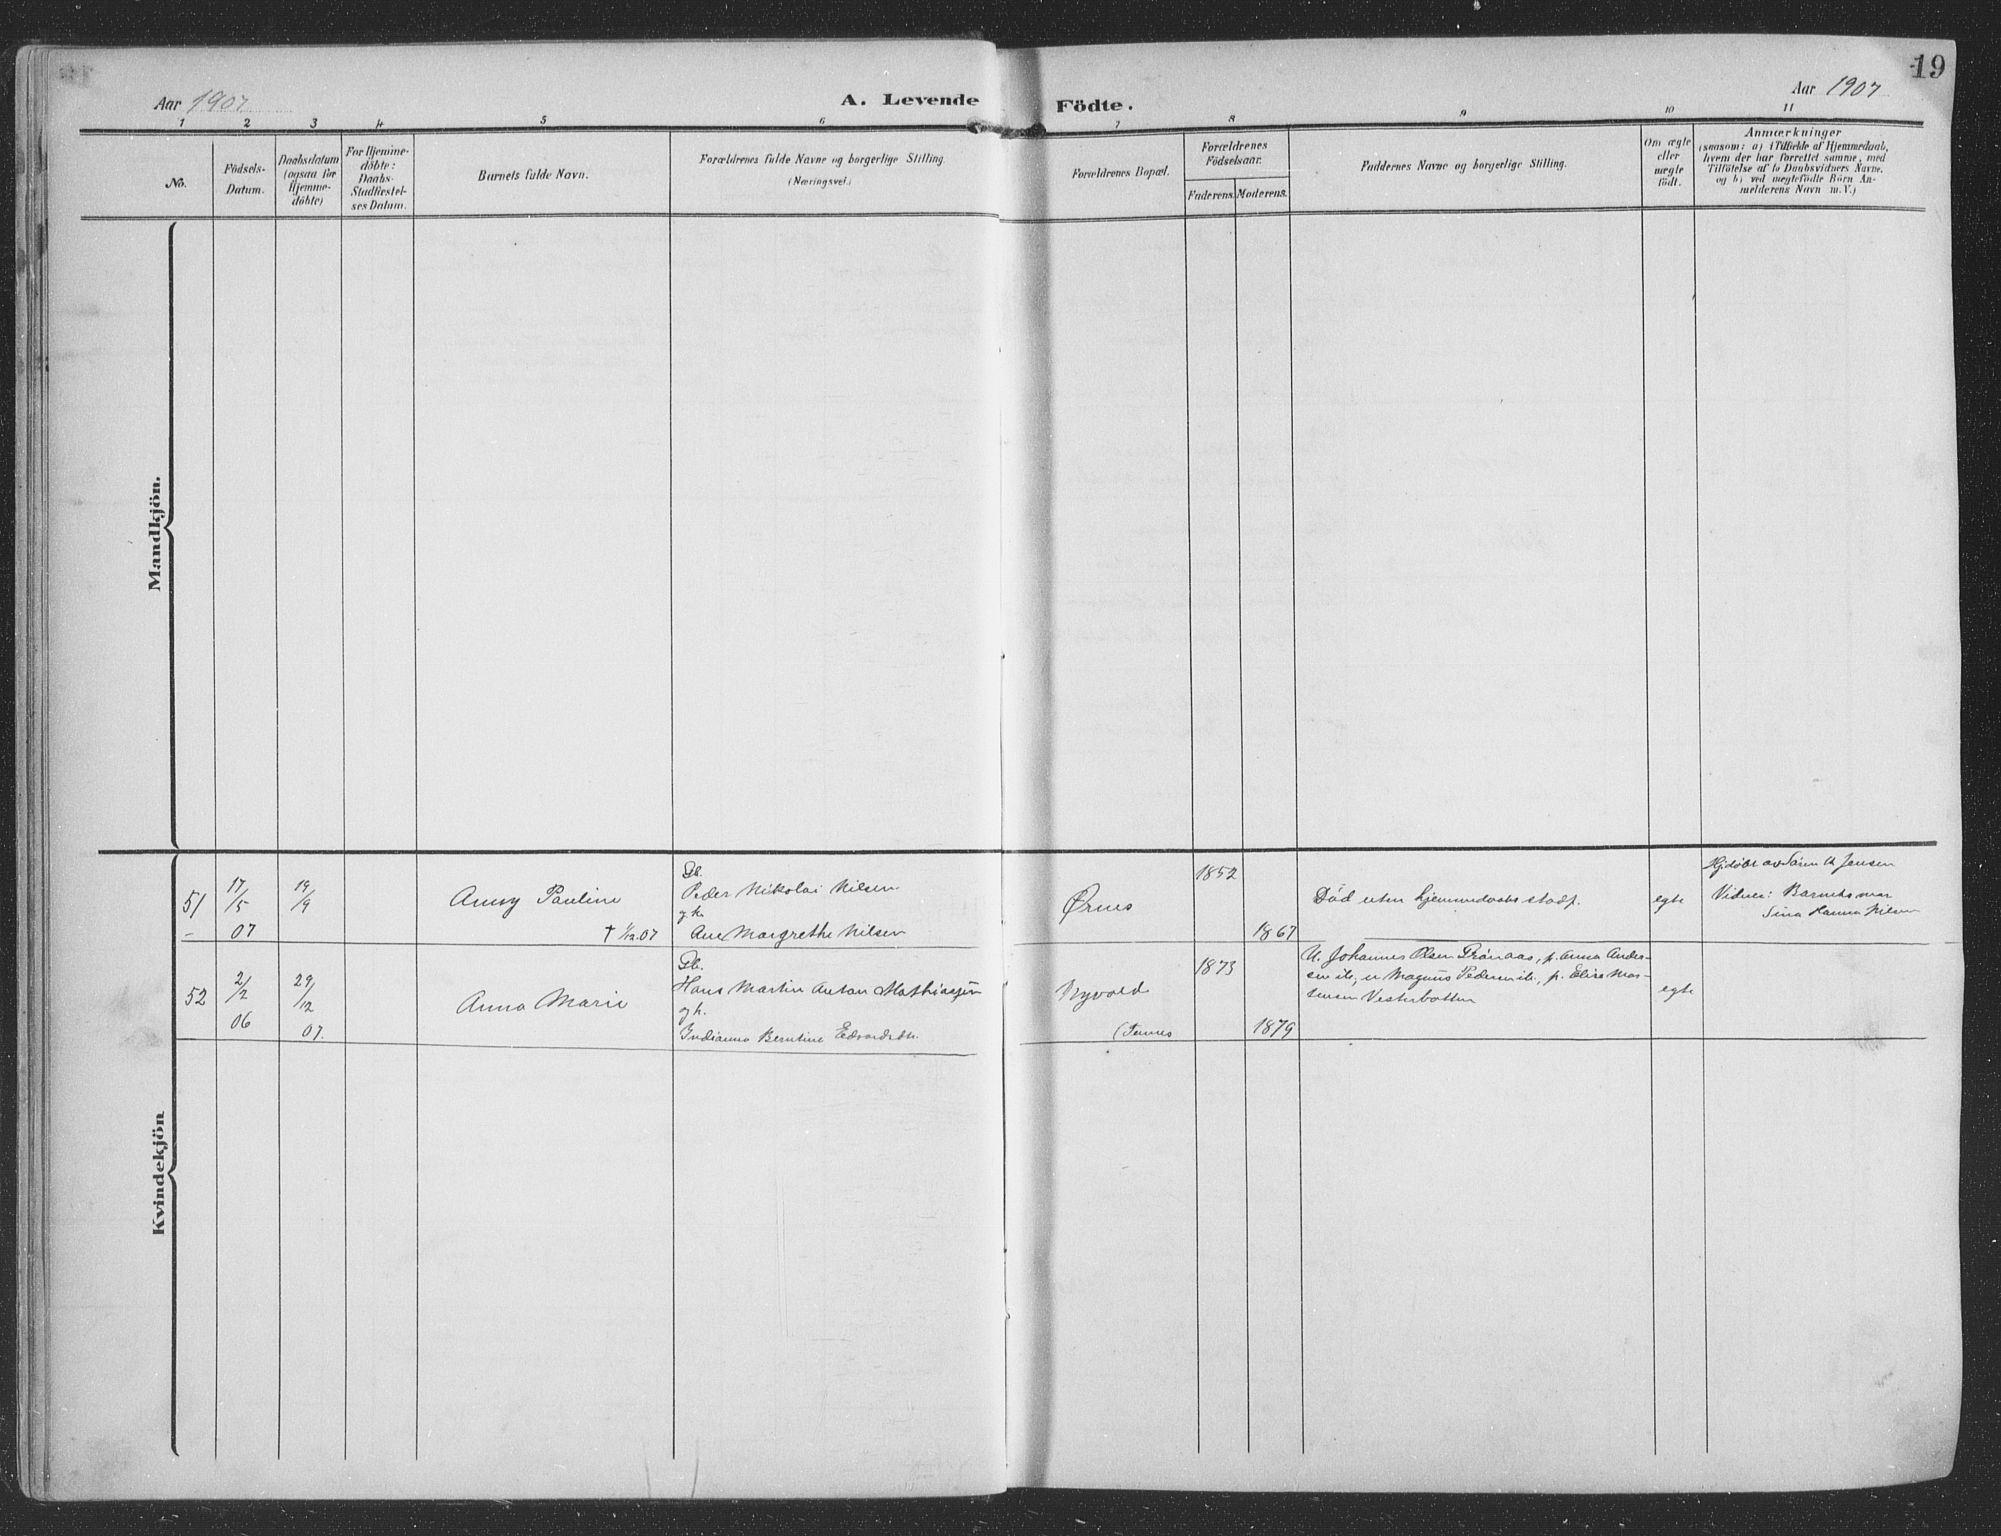 19
Aar 1907
A. Levende Födte.
Aar 1907
1 2 3 4 5 6 7 8 9 10 11
No.
Födsels-
Datum.
Daabsdatum
(ogsaa for
Hjemme-
döbte)
For Hjemme-
döbte:
Daabs-
Stadfæstel-
ses Datum.
Barnets fulde Navn.
Forældrenes fulde Navne og borgerlige Stilling.
(Næringsvei.)
Forældrenes Bopæl.
Forældrenes
Födselsaar.
Faderens. Moderens.
Faddernes Navne og borgerlige Stilling.
Om ægte
eller
uægte
födt.
Anmærkninger
(saasom: a) i Tilfælde af Hjemmedaab,
hvem der har forrettet samme, med
Tilföielse af to Daabsvidners Navne.
og b) ved uægtefödte Börn An-
melderens Navn m. V.)
Mandkjön.
Kvindekjön
51
-
17/5
07
19/9
Anny Pauline
† 1/12.07
Gb.
Peder Nikolai Nilsen
og h.
Ane Margrethe Nilsen
Ørnes
1852
1867
Död uten hjemmedaabs stadf.
egte
Hjdöbt av Sören A Jensen
Vidner: Barnets mor
Sina Hanna Nilsen
52
2/2
06
29/12
07.
Anna Marie
Gb.
Hans Martin Anton Mathiassen
og h.
Indianna Berntine Edvardsdtr.
Nyvold
(Tennes
1873
1879
U. Johannes Olsen Grönaas, p. Anna Ander-
sen ib, u Magnus Pedersen ib, p. Elise Mor-
tensen Vesterbotten
egte